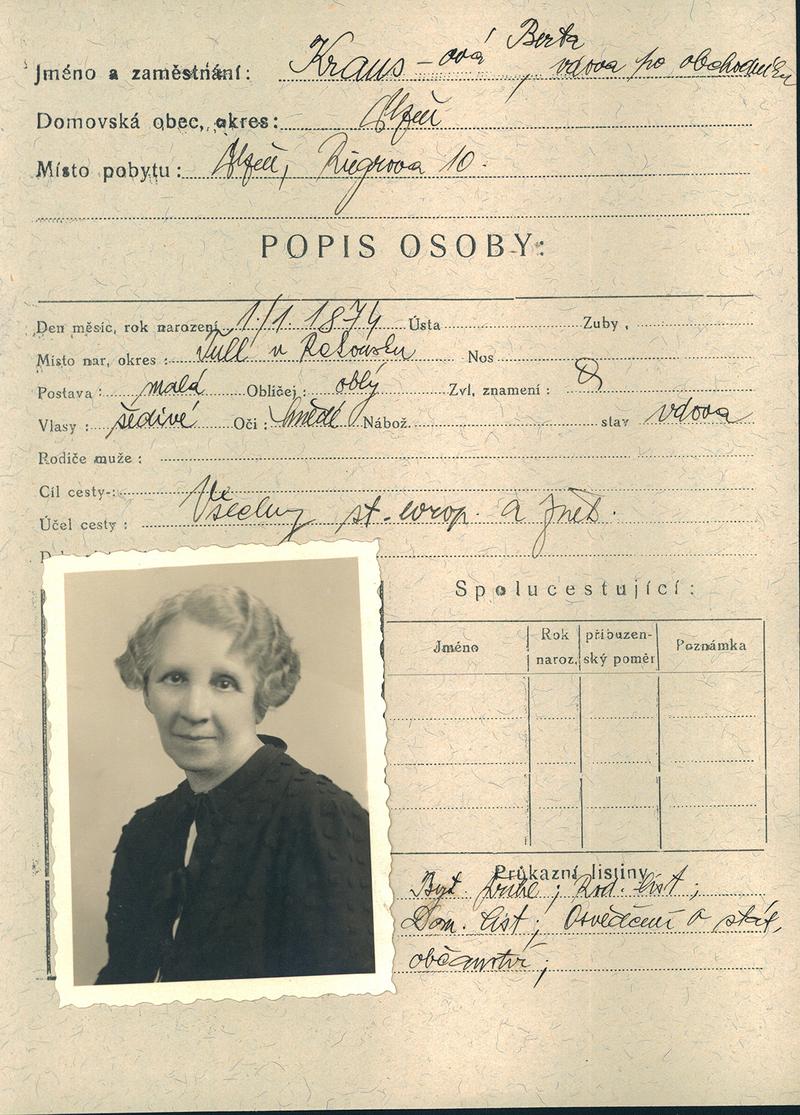 Jméno a zaměstnání: Kraus-ová Berta, vdova po obchodníku
Domovská obec, okres: Plzeň
Místo pobytu: Plzeň, Riegrova 10.
POPIS OSOBY:
Den měsíc, rok narození 1/1. 1874 Ústa Zuby
Místo nar, okres: v Nos
Postava: malá Obličej: oblý Zvl, znamení:
Vlasy: šedivé Oči: hnědé Nábož. stav vdova
Rodiče muže:
Cíl cesty-: Všechny st. evrop. a
Účel cesty:
Spolucestující:
Jméno Rok naroz. příbuzenský poměr Poznámka
Průkazní listiny
Byt. ; Rod. list;
Dom. list; Osvědčení o stát.
občanství;